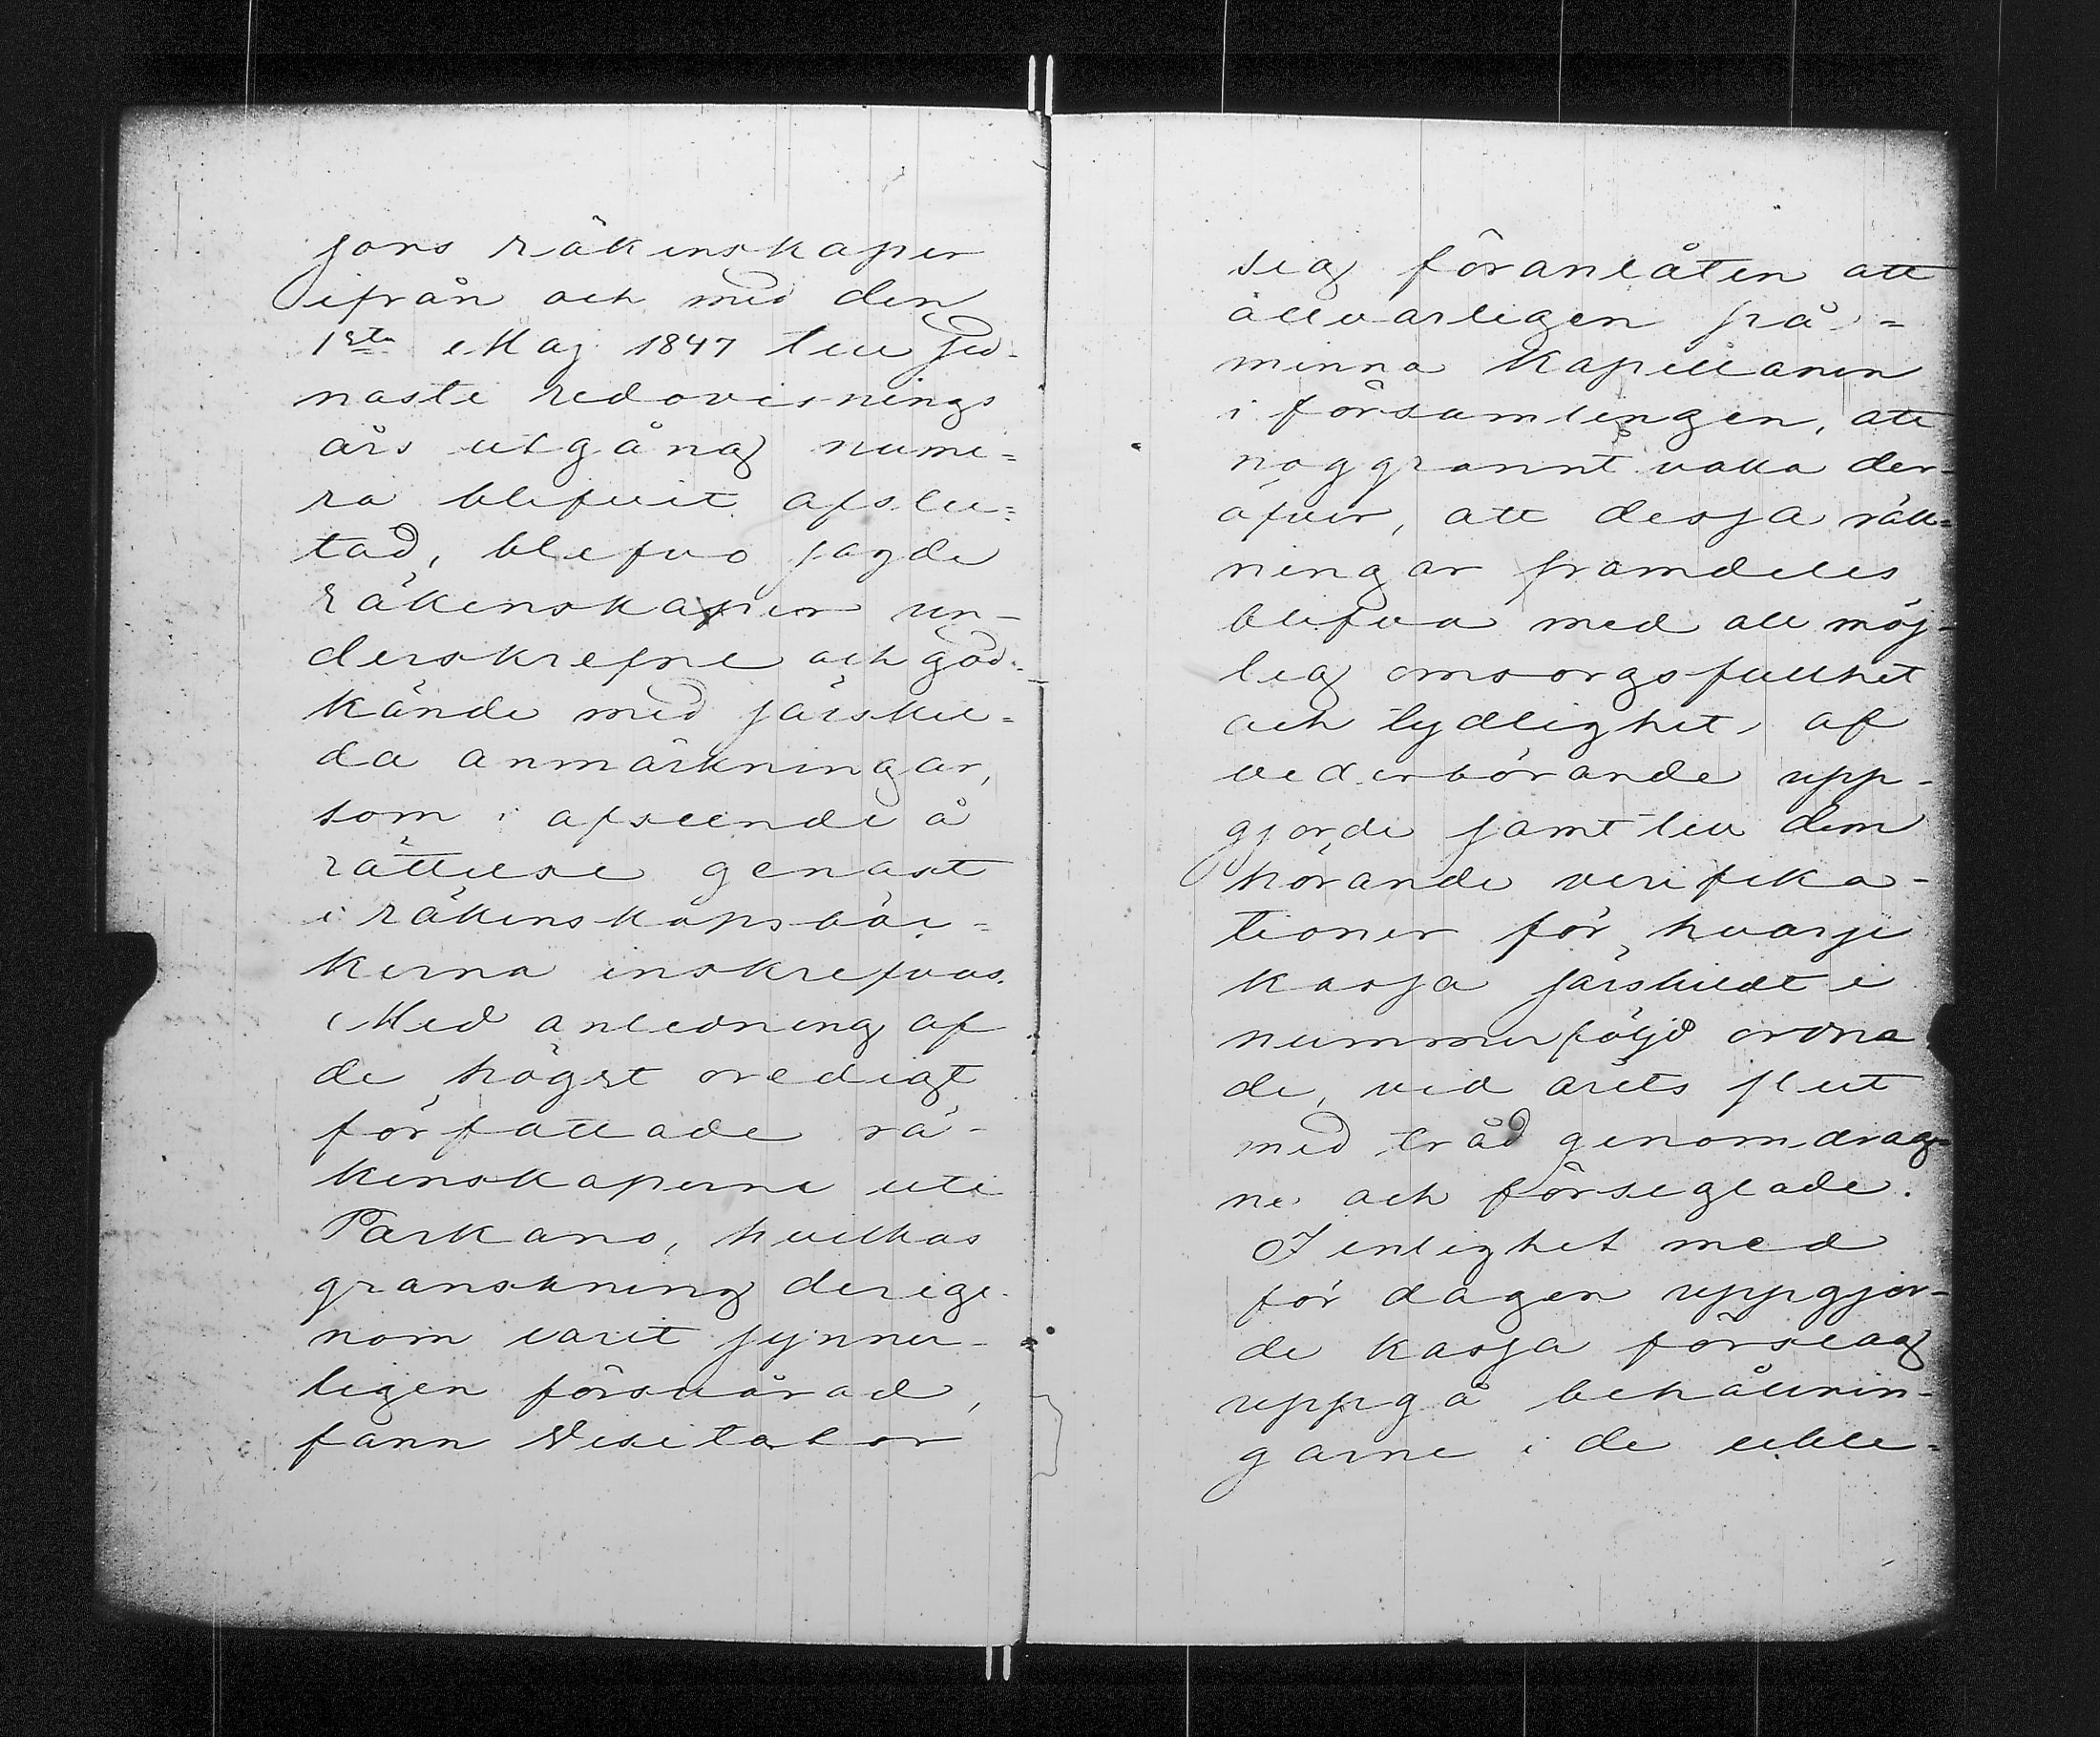 sors räkenskaper
ifrån och med den
1sta Maj 1847 till sed-
naste redovisnings
års utgång nume-
ra blifvit afslu-
tad, blefvo sagde
räkenskaper un-
derskrefne och god-
kände med särskil-
da anmärkningar,
som i afseende å
rättelse genast
i räkenskapsböc-
kerna inskrefvos.
Med anledning af
de högst oredigt
författade rä-
kenskaperne uti
Parkano, hvilkas
granskning derige-
nom varit synner-
ligen försvårad,
fann Visitator
sig föranlåten att
allvarligen på-
minna Kapellanen
i församlingen, att
noggrannt vaka der-
öfver, att dessa räk-
ningar framdeles
blifva med all möj-
lig omsorgsfullhet
och tydlighet af
vederbörande upp-
gjorde samt till dem
hörande verifika-
tioner för hvarje
kassa särskildt i
nummerföljd ordna
de, vid årets slut
med tråd genomdrag-
ne och förseglade.
I enlighet med
för dagen uppgjor-
de kassa förslag
uppgå behållnin-
garne i de